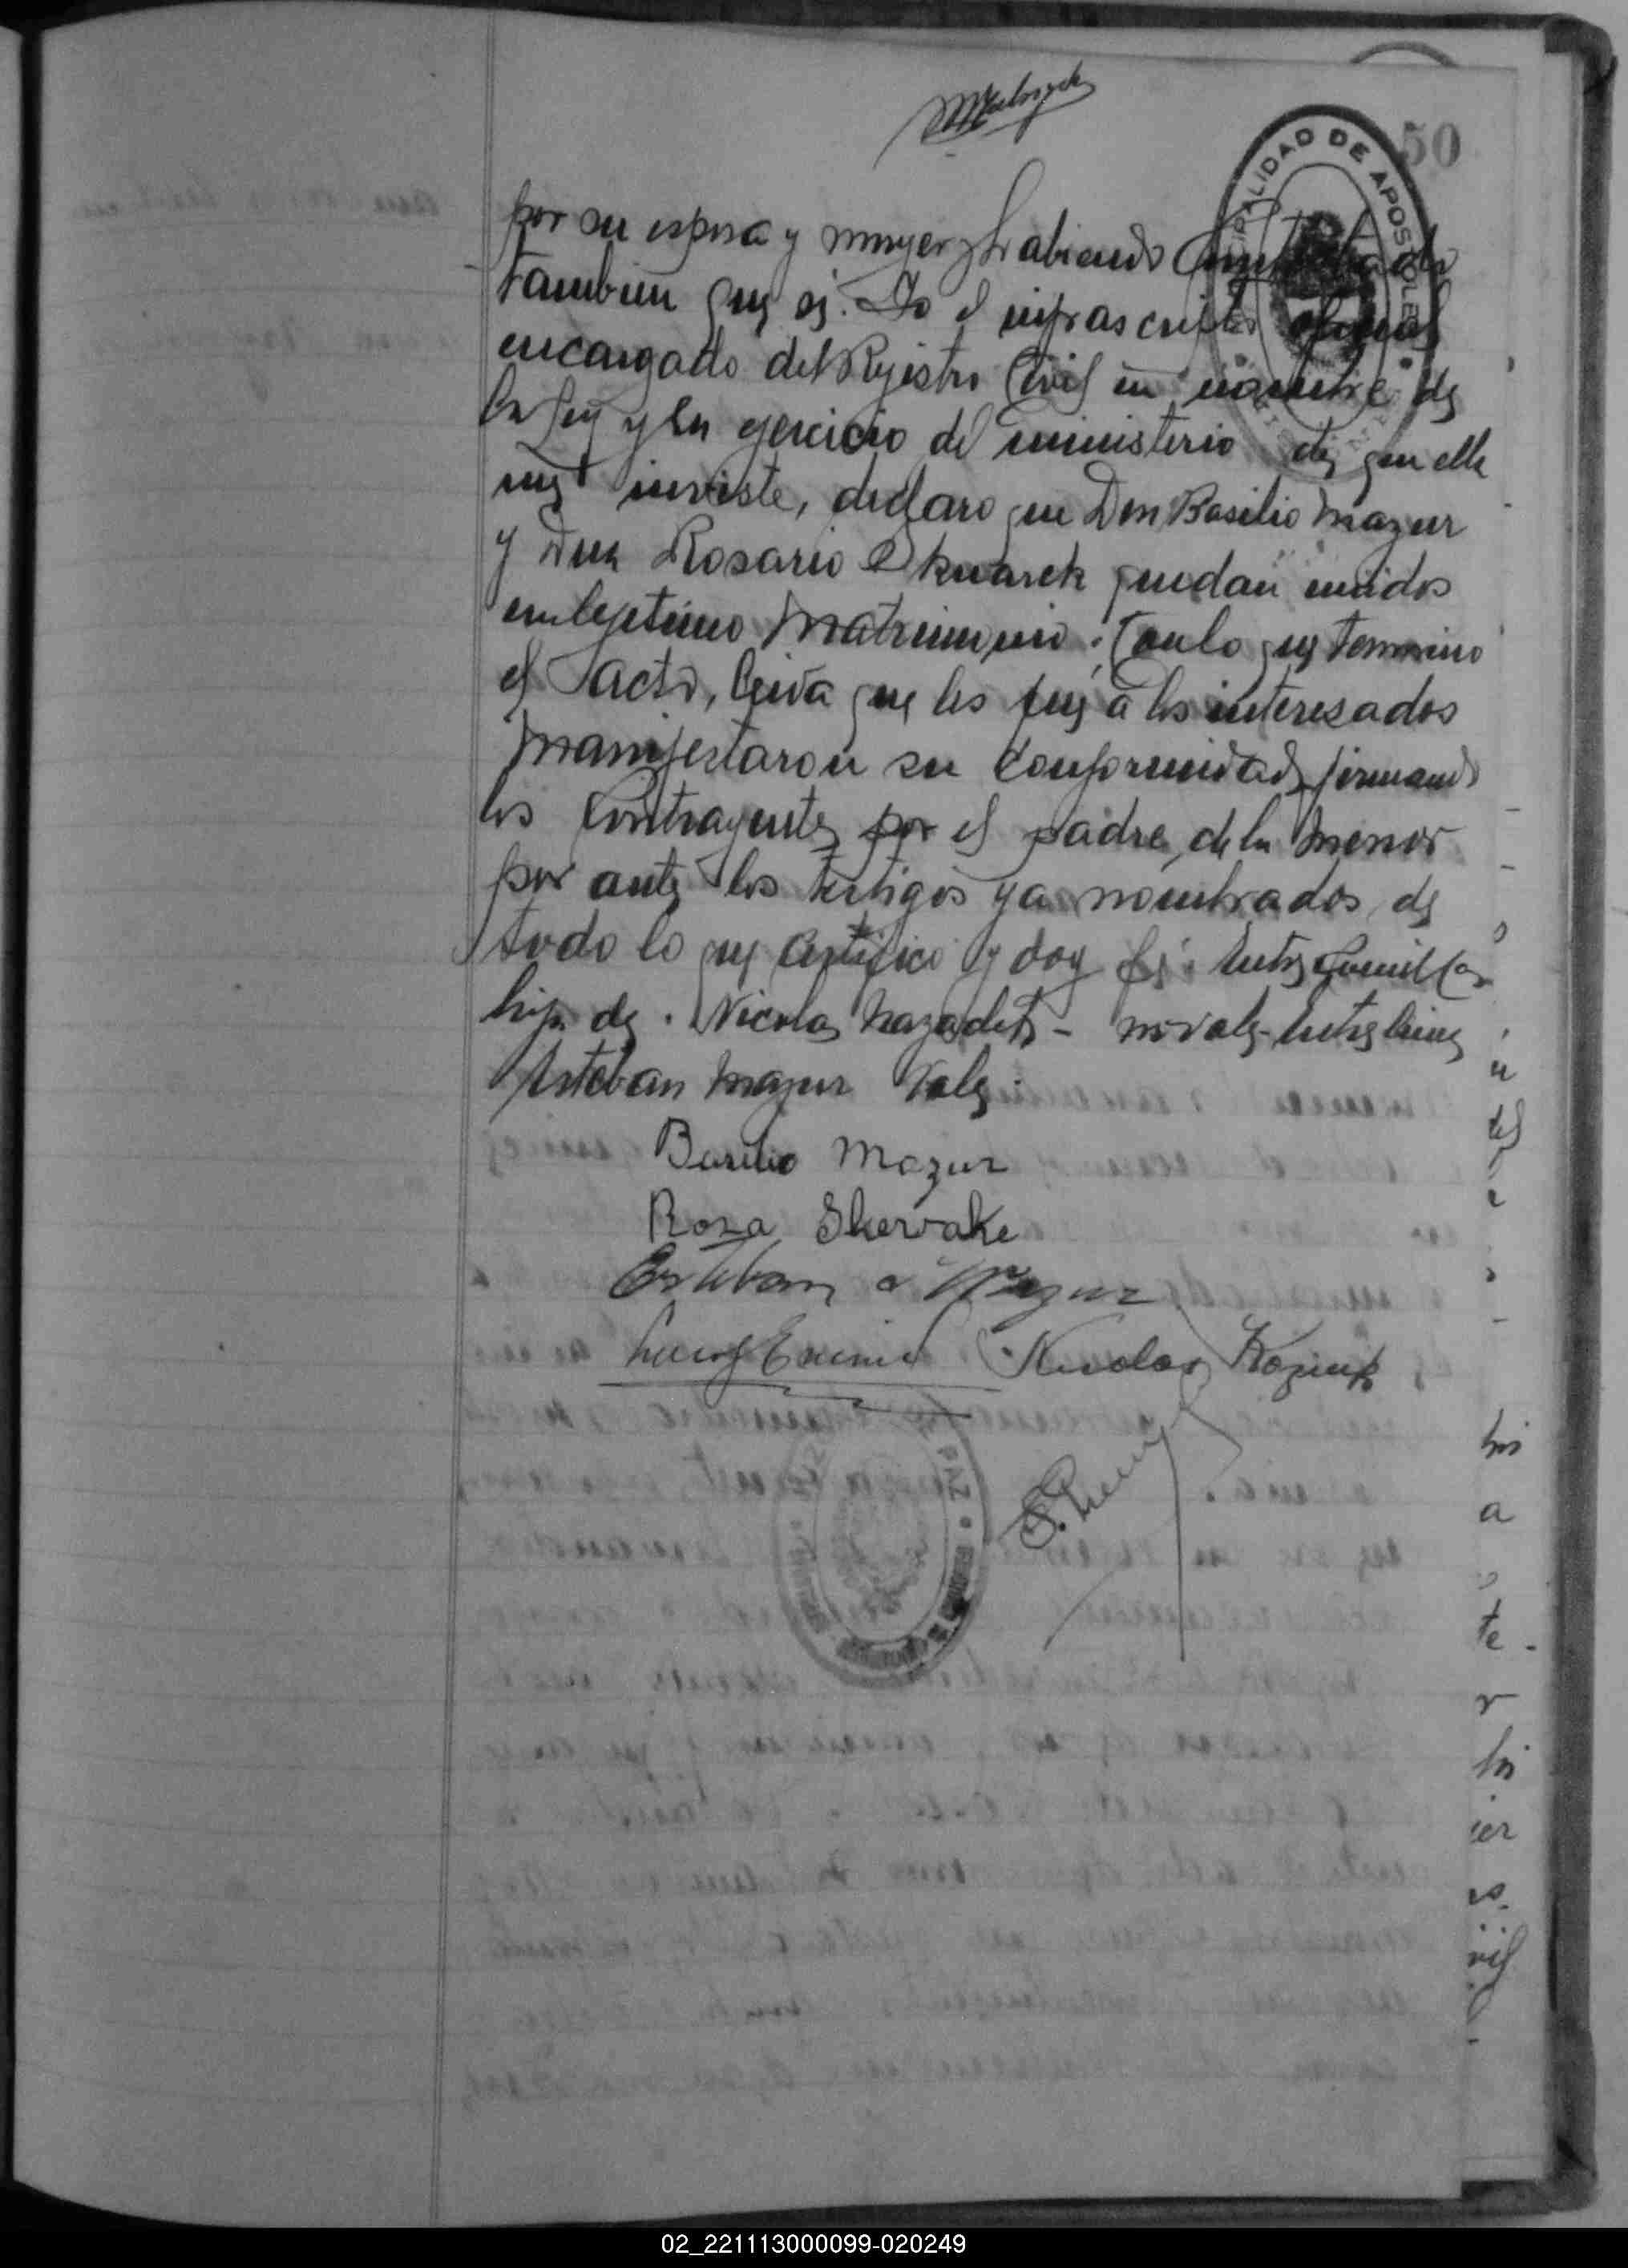 50
MUNICIPALIDAD DE APOSTOLES
por su esposa y mujer y habiendo contestado
tambien que si. Yo el infrascrito oficial
encargado del Rejistro Civil en nombre de
la ley y en ejercicio del ministerio de que ella
me inviste, declaro que Don Basilio Mazur
y Dña Rosario Skwarek quedan unidos
en lejetimo Matrimonio. Con lo que termino
el acto, leida que les fue a los interesados
Manifestaron su conformidad, firmando
los Contrayentes por el padre, de la menor
por ante los testigos ya nombrados, de
todo lo que certifico y doy fé. Entre comillas
hija de. Nicolas - no vale - Entre lineas
Esteban Mazur Vale.
Basilio Mazur
Roza Skervake
Esteban Mazur
Nicolas
02_221113000099-020249